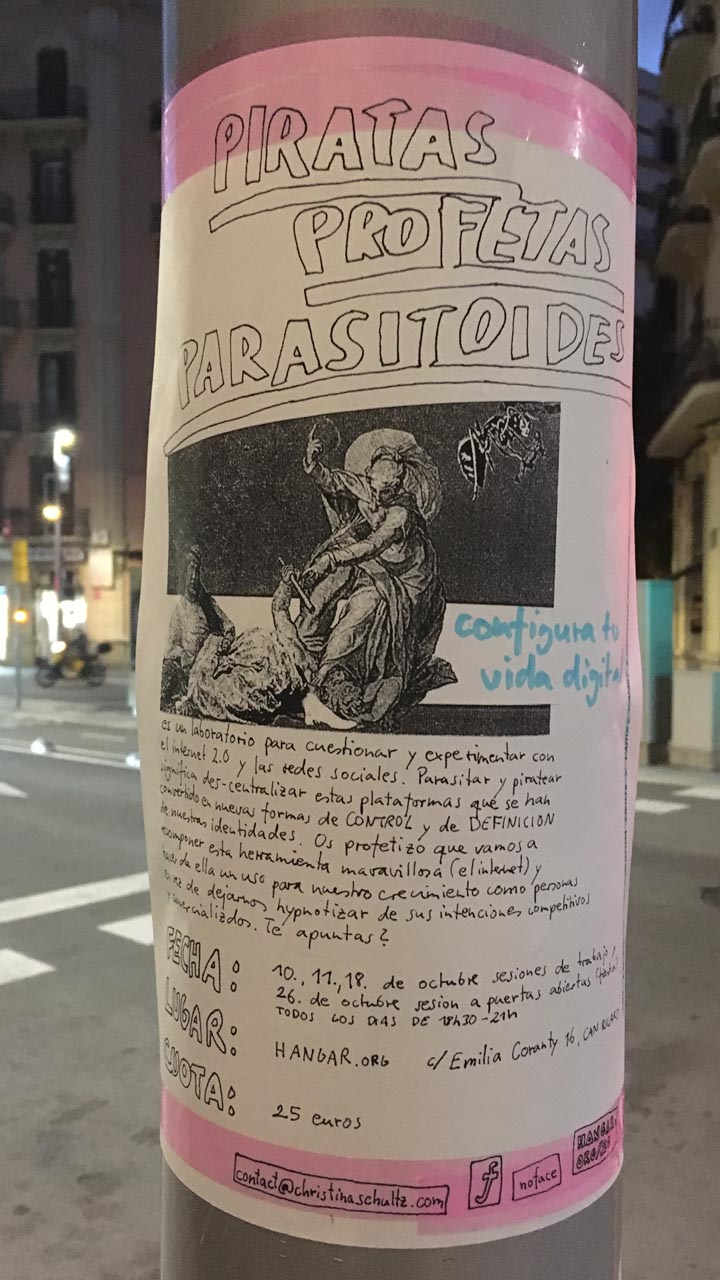 PIRATAS
PROFETAS
PARASITOIDES
configura tu
vida digital
es un laboratorio para cuestionar y experimentar con
el internet 2.0 y las redes sociales. Parasitar y piratear
significa des-centralizar estas plataformas que se han
convertido en nuevas formas de CONTROL y de DEFINICION
de nuestras identidades. Os profetizo que vamos a
recomponer esta herramienta maravillosa (el internet) y
hacer de ella un uso para nuestro crecimiento como personas
en vez de dejarnos hypnotizar de sus intenciones competitivos
y comercializdos. Te apuntas?
FECHA: 10., 11., 18. de octubre sesiones de trabajo y
26. de octubre sesion a puertas abiertas
TODOS LOS DIAS DE 18h30-21h
LUGAR: HANGAR.ORG c/ Emilia Coranty 16, CAN RICART
CUOTA: 25 euros
contact@christinaschultz.com
f
noface
HANGAR.
ORG/